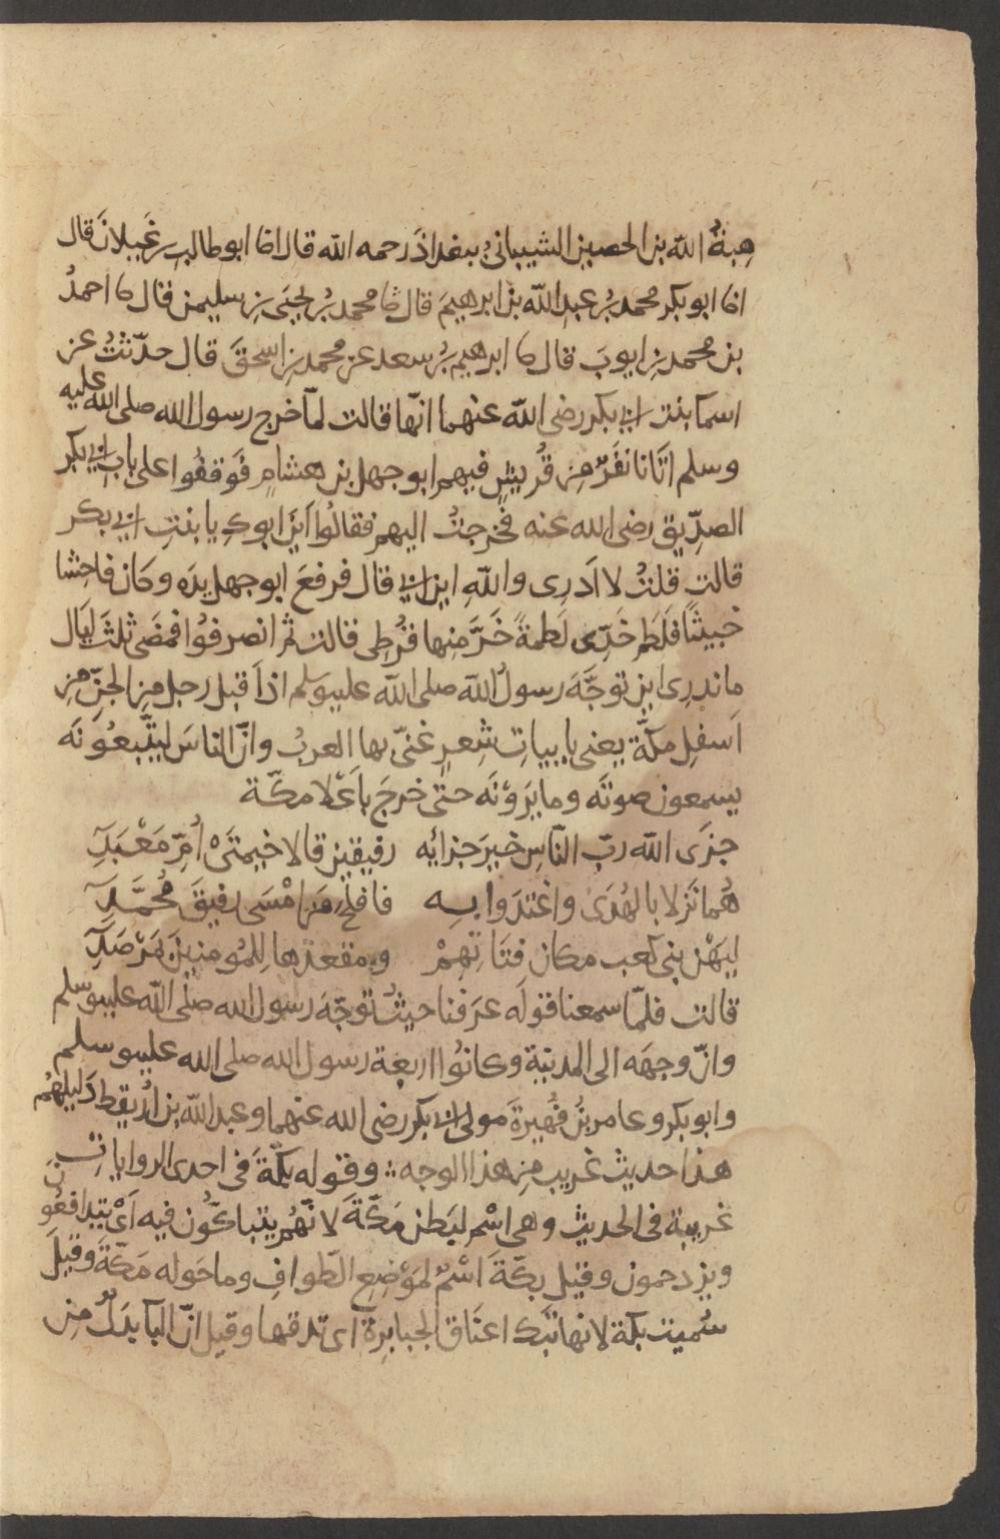 هِبةُ الله بن الحصين الشيبانيُ ببغداذَ رحمه الله قال انا ابو طالبِ بن غَيبلانَ قال
انا ابو بكر محمد بنُ عبدِ الله بن ابرهيمَ قال ثا محمد بنُ يحيَى بنِ سليمن قال ثا احمدُ
بن محمد بنِ ايوبَ قال ثا ابرهيم بنُ سعد عن محمد بنِ اسحقَ قال حدّثتُ عن
اسما بنت ابي بكر رضي الله عنهما انّها قالت لمّا خرج رسول الله صلى الله عليه
وسلم اتَانا نفَرٌ مِن قُريشٍ فيهم ابو جهل بن هشامٍ فَوقفُوا على بابِ ابي بكر
الصدِّيق رضي الله عنه فخرجتُ اليهم فقالُوا اَينَ ابوكِ يا بنتِ ابي بكر
قالت قلتُ لا اَدرِى واللهِ اين ابي قال فرفعَ ابو جهل يدَه وكان فاحِشا
خبيثًا فلَطم خَدِّى لَطمةً خَرَّ مِنها قُرطى قالت ثم انصرفُوا فمضَى ثلثَ ليَال
ما ندرِى اين توجَّهَ رسولُ الله صلى الله عليه وسلم اذ اَقبل رجل مِن الجنّ مِن
اَسفلِ مكّة يغنى بابياتِ شِعرٍ غنّى بها العربُ وانّ الناسَ ليتّبعُونَه
يسمعون صوتَه وما يَرَوْنَه حتّى خرجَ باَعْلا مكّة
جزَى الله ربّ النّاس خيرَ جزائِه رفيقين قالا خيمتَىْ اُمِّ مَعْبَدِ
هُما نَزلا بالهُدَى واغتدَوا به فافلحَ مَن امْسَى رفيقَ مُحمَّدِ
ليَهْنِ بنى كعب مكان فتَاتِهِمْ ومقعدها لِلمُومنين بَمَرْصَدِ
قالت فلمّا سمعنا قولَه عرَفنا حيثُ توجّهَ رسول الله صلى الله عليه وسلم
وانّ وجهَه الى المدينة وكانُوا اربعة رسول الله صلى الله عليه وسلم
وابو بكر وعامر بنُ فُهَيرةَ مولى ابي بكر رضي الله عنهما وعبد الله بن اُرَيقط دَليلهُم
هذا حديث غريب مِن هذا الوجه وقوله بكّةَ فى احدى الروايات
غريبة فى الحديث وهى اسْم لبَطن مَكّةَ لانّهُم يتباكّون فيه اَىْ يتدافعُون
ويزدحمون وقيل بكّةَ اسْمٌ لمَوْضِع الطّوافِ وما حَوله مَكّةَ وقيلَ
سُميت بكة لانها تَبُك اعنَاق الجبابِرة اى تدقها وقيل انّ البآ بدَلٌ مِن